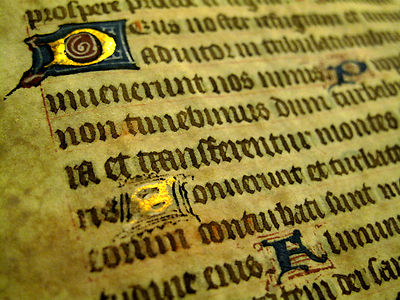 prospere
Deus noster refugium et
adiutor in tribulationibus
inuenerunt nos nimis P
non timebimus dum turbab
ra et transferentur montes
ris Sonuerunt et turbat
eorum conturbati sunt m
tudine eius F lumin
dei